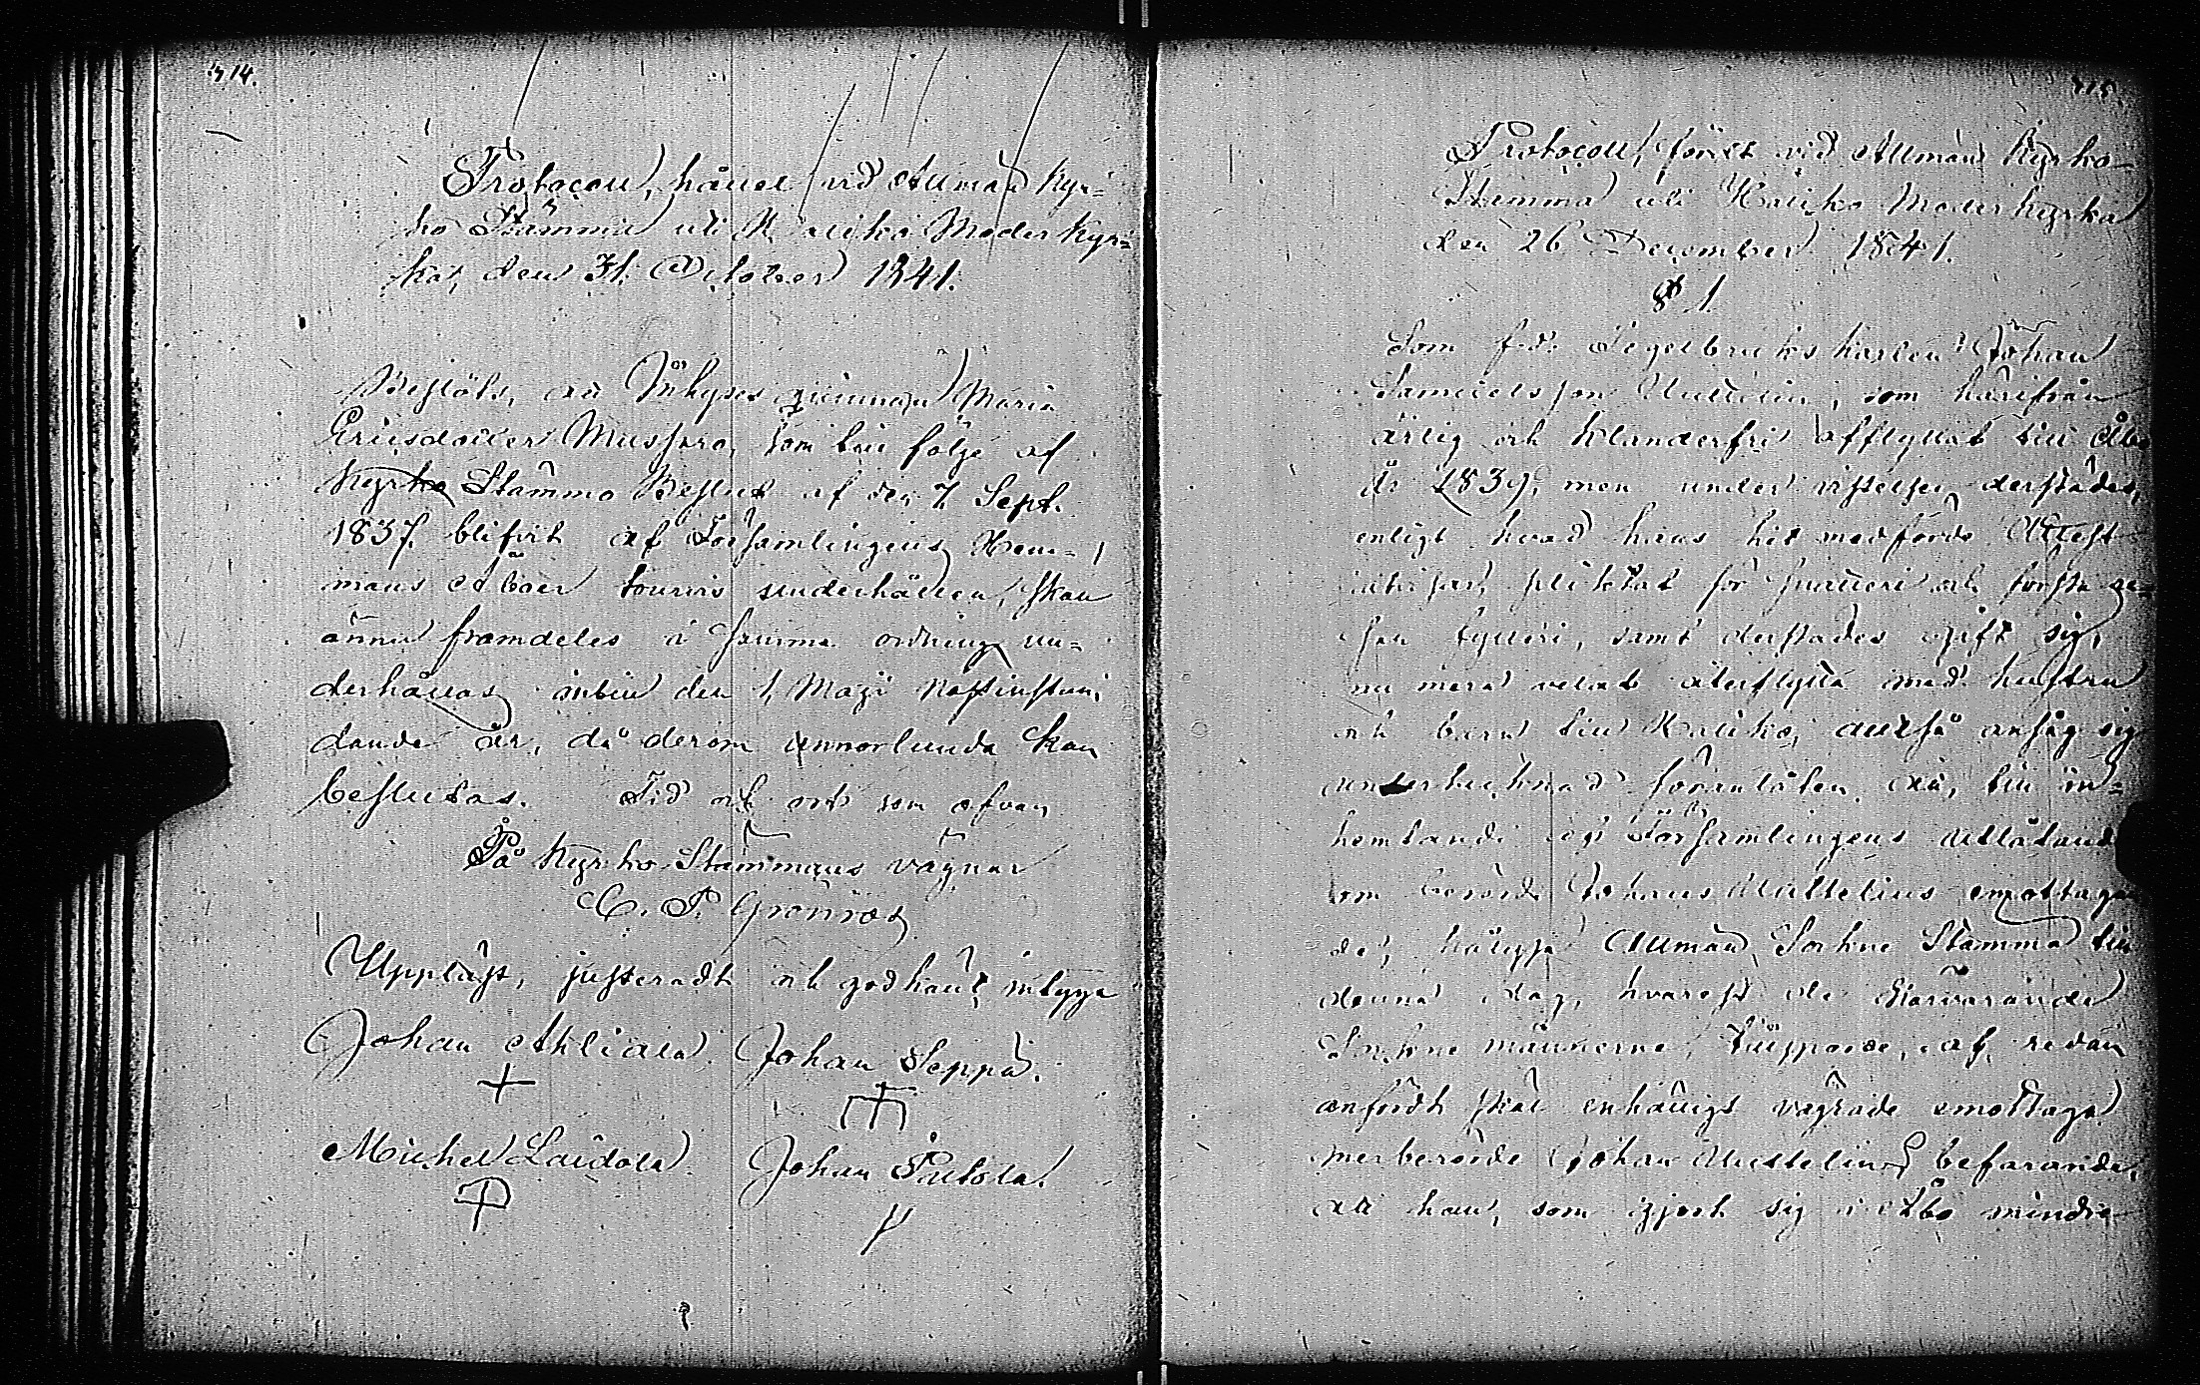 314.
Protocoll, hållet vid Allmän Kyr=
ko Stämma uti Kaliko Moder Kyr=
ka, den 31. October 1841.
Beslöts, att Inhyses qvinnan Maria
Ericsdotter Mussaro, som till följe af
Kyrko Stämmo Beslut af den 7 Sept.
1837. blifvit af Församlingens Hem=
mans Åboer tourvis underhållen, skall
ännu framdeles i samma ordning un=
derhållas intill den 1 Maji nästinstun=
dande år, då derom annorlunda kan
beslutas. Tid och ort som ofvan
På Kyrko-Stämmans vägnar
C. P. Grönroos
Uppläst, justeradt och godkändt, intyga
Johan Ahliala. Johan Seppä.
Michel Laidola. Johan Paltola.
315.
Protocoll, fördt vid Allmän Kyrko-
Stämma uti Kaliko Moderkyrka
den 26 December 1841.
§ 1.
Som f.d. Tegelbrukskarlen Johan
Samuelsson Mittelin, som härifrån
ärlig och klanderfri afflyttat till Åbo
år 1839, men under vistelsen derstädes,
enligt hvad hans hit medförde Attest
utvisar, pliktat för snatteri och första re=
san fylleri, samt derstädes gift sig,
nu mera velat återflytta med hustru
och barn till Kaliko; altså ansåg sig
undertecknad föranlåten att, till in=
hemtande af Församlingens utlåtande
om berörde Johans Mittelins emottagan
de, hålla Allmän Sockne Stämma till
denna dag, hvarest de närvarande
Sockne männerne, tillsporde, af redan
anfördt skäl enhälligt vägrade emottaga
merberörde Johan Mittelin, befarande,
att han, som gjort sig i Åbo mindre